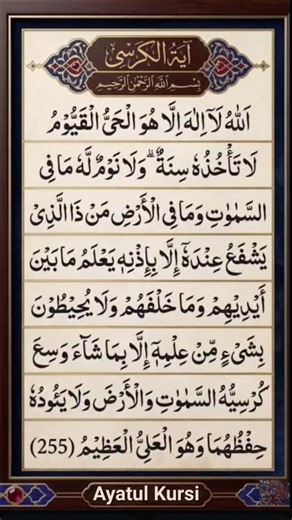 آيَةُ الْكُرْسِيّ
بِسْمِ اللهِ الرَّحْمٰنِ الرَّحِيْمِ
اَللهُ لَآ اِلٰهَ اِلَّا هُوَ الْحَيُّ الْقَيُّوْمُ
لَا تَأْخُذُهٗ سِنَةٌ ۗ وَلَا نَوْمٌ لَّهٗ مَا فِى
السَّمٰوٰتِ وَمَا فِى الْأَرْضِ مَنْ ذَا الَّذِىْ
يَشْفَعُ عِنْدَهٗٓ إِلَّا بِإِذْنِهٖ يَعْلَمُ مَا بَيْنَ
أَيْدِيْهِمْ وَمَا خَلْفَهُمْ وَلَا يُحِيْطُوْنَ
بِشَىْءٍ مِّنْ عِلْمِهٖٓ إِلَّا بِمَا شَآءَ وَسِعَ
كُرْسِيُّهُ السَّمٰوٰتِ وَالْأَرْضَ وَلَا يَئُوْدُهٗ
حِفْظُهُمَا وَهُوَ الْعَلِيُّ الْعَظِيْمُ (255)
Ayatul Kursi